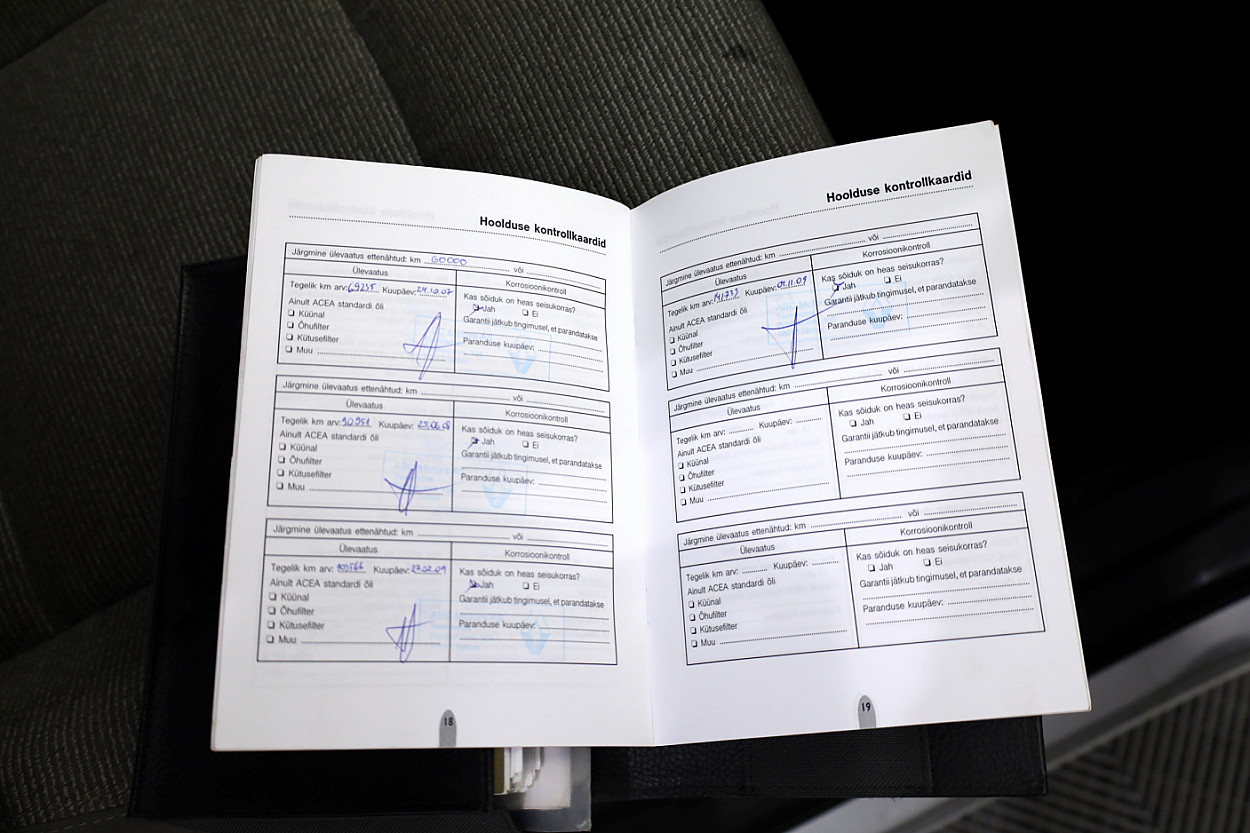 Hoolduse kontrollkaardid
Järgmine ülevaatus ettenähtud: km 60000 või
Ülevaatus
Korrosioonikontroll
Tegelik km arv: 69235 Kuupäev: 24.10.07
Kas sõiduk on heas seisukorras?
Jah Ei
Ainult ACEA standardi õli
Garantii jätkub tingimusel, et parandatakse
Küünal
Õhufilter
Kütusefilter
Paranduse kuupäev:
Muu
Järgmine ülevaatus ettenähtud: km või
Ülevaatus
Korrosioonikontroll
Tegelik km arv: 90951 Kuupäev: 25.06.08
Kas sõiduk on heas seisukorras?
Jah Ei
Ainult ACEA standardi õli
Garantii jätkub tingimusel, et parandatakse
Küünal
Õhufilter
Kütusefilter
Paranduse kuupäev:
Muu
Järgmine ülevaatus ettenähtud: km või
Ülevaatus
Korrosioonikontroll
Tegelik km arv: Kuupäev: 27.02.09
Kas sõiduk on heas seisukorras?
Jah Ei
Ainult ACEA standardi õli
Garantii jätkub tingimusel, et parandatakse
Küünal
Õhufilter
Kütusefilter
Paranduse kuupäev:
Muu
18
Hoolduse kontrollkaardid
Järgmine ülevaatus ettenähtud: km või
Ülevaatus
Korrosioonikontroll
Tegelik km arv: 141733 Kuupäev: 09.11.09
Kas sõiduk on heas seisukorras?
Jah Ei
Ainult ACEA standardi õli
Garantii jätkub tingimusel, et parandatakse
Küünal
Õhufilter
Kütusefilter
Paranduse kuupäev:
Muu
Järgmine ülevaatus ettenähtud: km või
Ülevaatus
Korrosioonikontroll
Tegelik km arv: Kuupäev:
Kas sõiduk on heas seisukorras?
Jah Ei
Ainult ACEA standardi õli
Garantii jätkub tingimusel, et parandatakse
Küünal
Õhufilter
Kütusefilter
Paranduse kuupäev:
Muu
Järgmine ülevaatus ettenähtud: km või
Ülevaatus
Korrosioonikontroll
Tegelik km arv: Kuupäev:
Kas sõiduk on heas seisukorras?
Jah Ei
Ainult ACEA standardi õli
Garantii jätkub tingimusel, et parandatakse
Küünal
Õhufilter
Kütusefilter
Paranduse kuupäev:
Muu
19